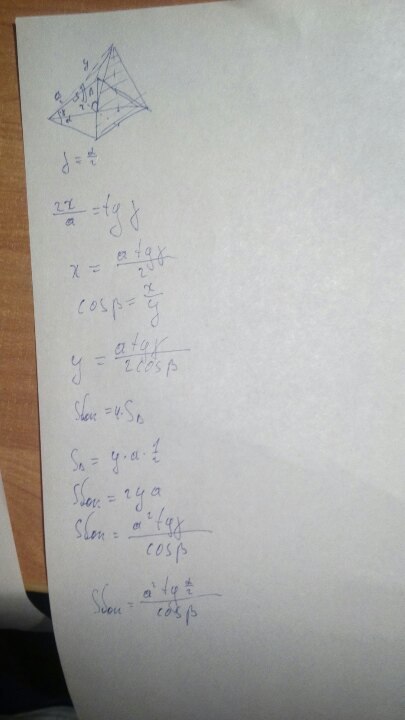 γ = α/2
2x/a = tg γ
x = a tgγ/2
cosβ = x/y
y = a tgγ/2cosβ
Sбок = 4·S▵
S▵ = y·a·1/2
Sбок = 2ya
Sбок = a² tgγ/cosβ
Sбок = a² tg α/2/cosβ